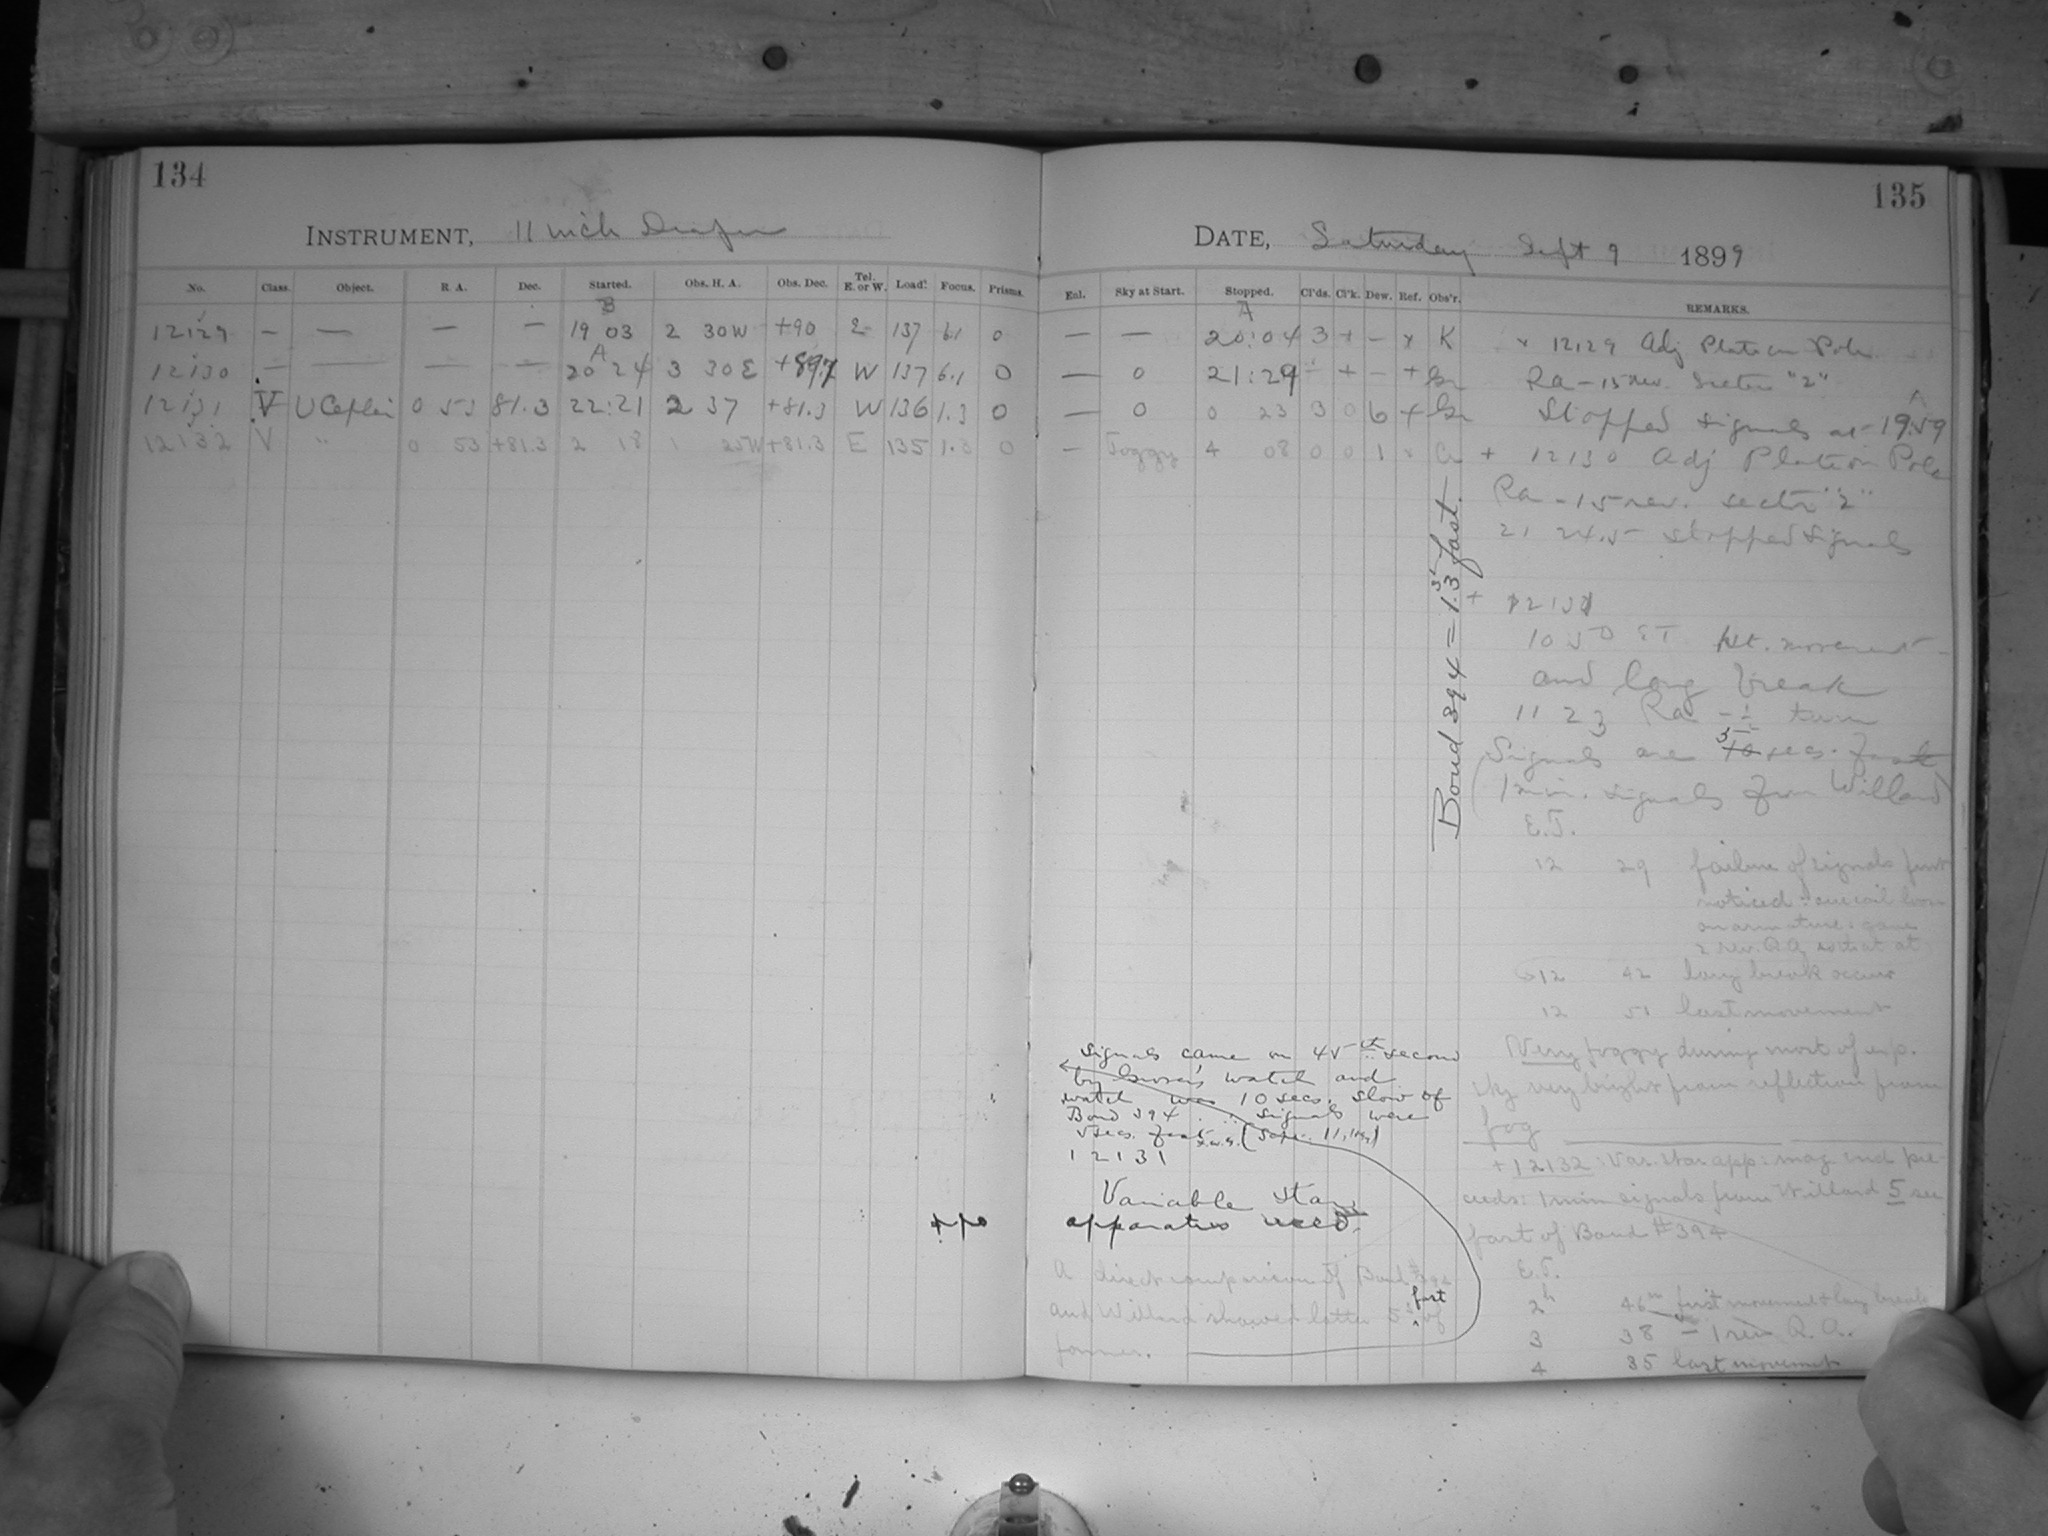 134
INSTRUMENT, 11 inch Draper
No. Class. Object. R. A. Dec. Started. Obs. H. A. Obs. Dec. Tel. E. or W. Load. Focus. Prisms.
B
12129 — — — — 19 03 2 30W +90 E 137 6.1 0
A
12130 — — — — 20 24 3 30E +89.7 W 137 6.1 0
12131 V U Cephei 0 53 81.3 22:21 2 37 +81.3 W 136 1.3 0
12132 V " 0 53 +81.3 2 18 1 25W +81.3 E 135 1.3 0
135
DATE, Saturday Sept 9 1899
Enl. Sky at Start. Stopped. Cl'ds. Cl'k. Dew. Ref. Obs'r. REMARKS.
A
— — 20:04 3 + - x K
— 0 21:29 + - + Gr
— 0 0 23 3 0 6 + Gr
— Foggy 4 08 0 0 1 x
x 12129 Adj Plate on Pole
Ra - 15 rev. Sector "2"
Stopped signals at 19.59
+ 12130 Adj Plate on Pole
Ra - 15 rev. sector "2"
21 24.5 stopped signals
Bond 394 = 1.3 fast.
+ 12131
10 50 ET 1st. movement
and long break
11 23 Ra - ½ turn
Signals are secs. fast
1 min. signals from Willard
E.T.
12 29 failure of signals first
noticed:
on armature: gave
2 rev. R.A. so that at
12 42 long break occurs
12 51 last movement
Very foggy during most of exp.
sky very bright from reflection from
fog
+ 12132: Var. star app: mag end pre-
ceeds: 1 min signals from Willard 5 sec
fast of Bond #394
E.T.
2h 46m first movement & long break
3 38 - 1 rev R.A.
4 35 last movement
Signals came on 45th second
by watch and
watch was 10 secs. slow of
Bond 394 ∴ signals were
5 secs. fast
12131
Variable star
apparatus used.
A direct comparison of Bond #394
and Willard showed latter 5s fast of
former.